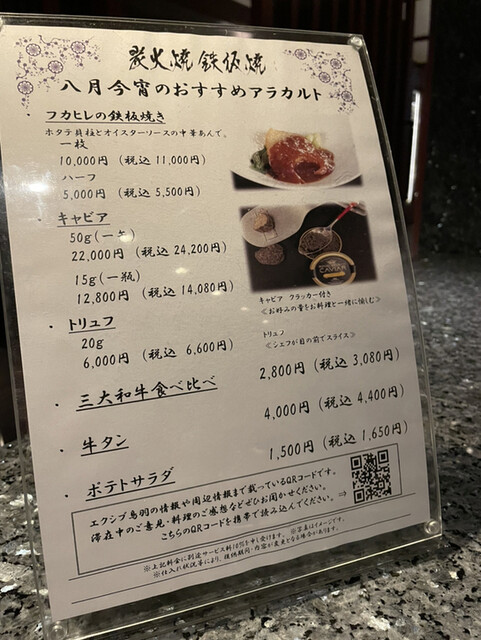 炭火焼 鉄板焼
八月今宵のおすすめアラカルト
・ フカヒレの鉄板焼き
ホタテ貝柱とオイスターソースの中華あんで。
一枚
10,000円 (税込 11,000円)
ハーフ
5,000円 (税込 5,500円)
・ キャビア
50g(一缶)
22,000円 (税込 24,200円)
15g(一瓶)
12,800円 (税込 14,080円)
CAVIAR
キャビア クラッカー付き
≪お好みの量をお料理と一緒に愉しむ≫
・ トリュフ
20g
6,000円 (税込 6,600円)
トリュフ
≪シェフが目の前でスライス≫
・ 三大和牛食べ比べ
2,800円 (税込 3,080円)
・ 牛タン
4,000円 (税込 4,400円)
・ ポテトサラダ
1,500円 (税込 1,650円)
エクシブ鳥羽の情報や周辺情報まで載っているQRコードです。
滞在中のご意見・料理のご感想などぜひお聞かせください。
こちらのQRコードを携帯で読み込んでください。⇒
※上記料金に別途サービス料10%を申し受けます。 ※写真はイメージです。
※仕入れ状況等により、提供期間・内容が変更となる場合があります。